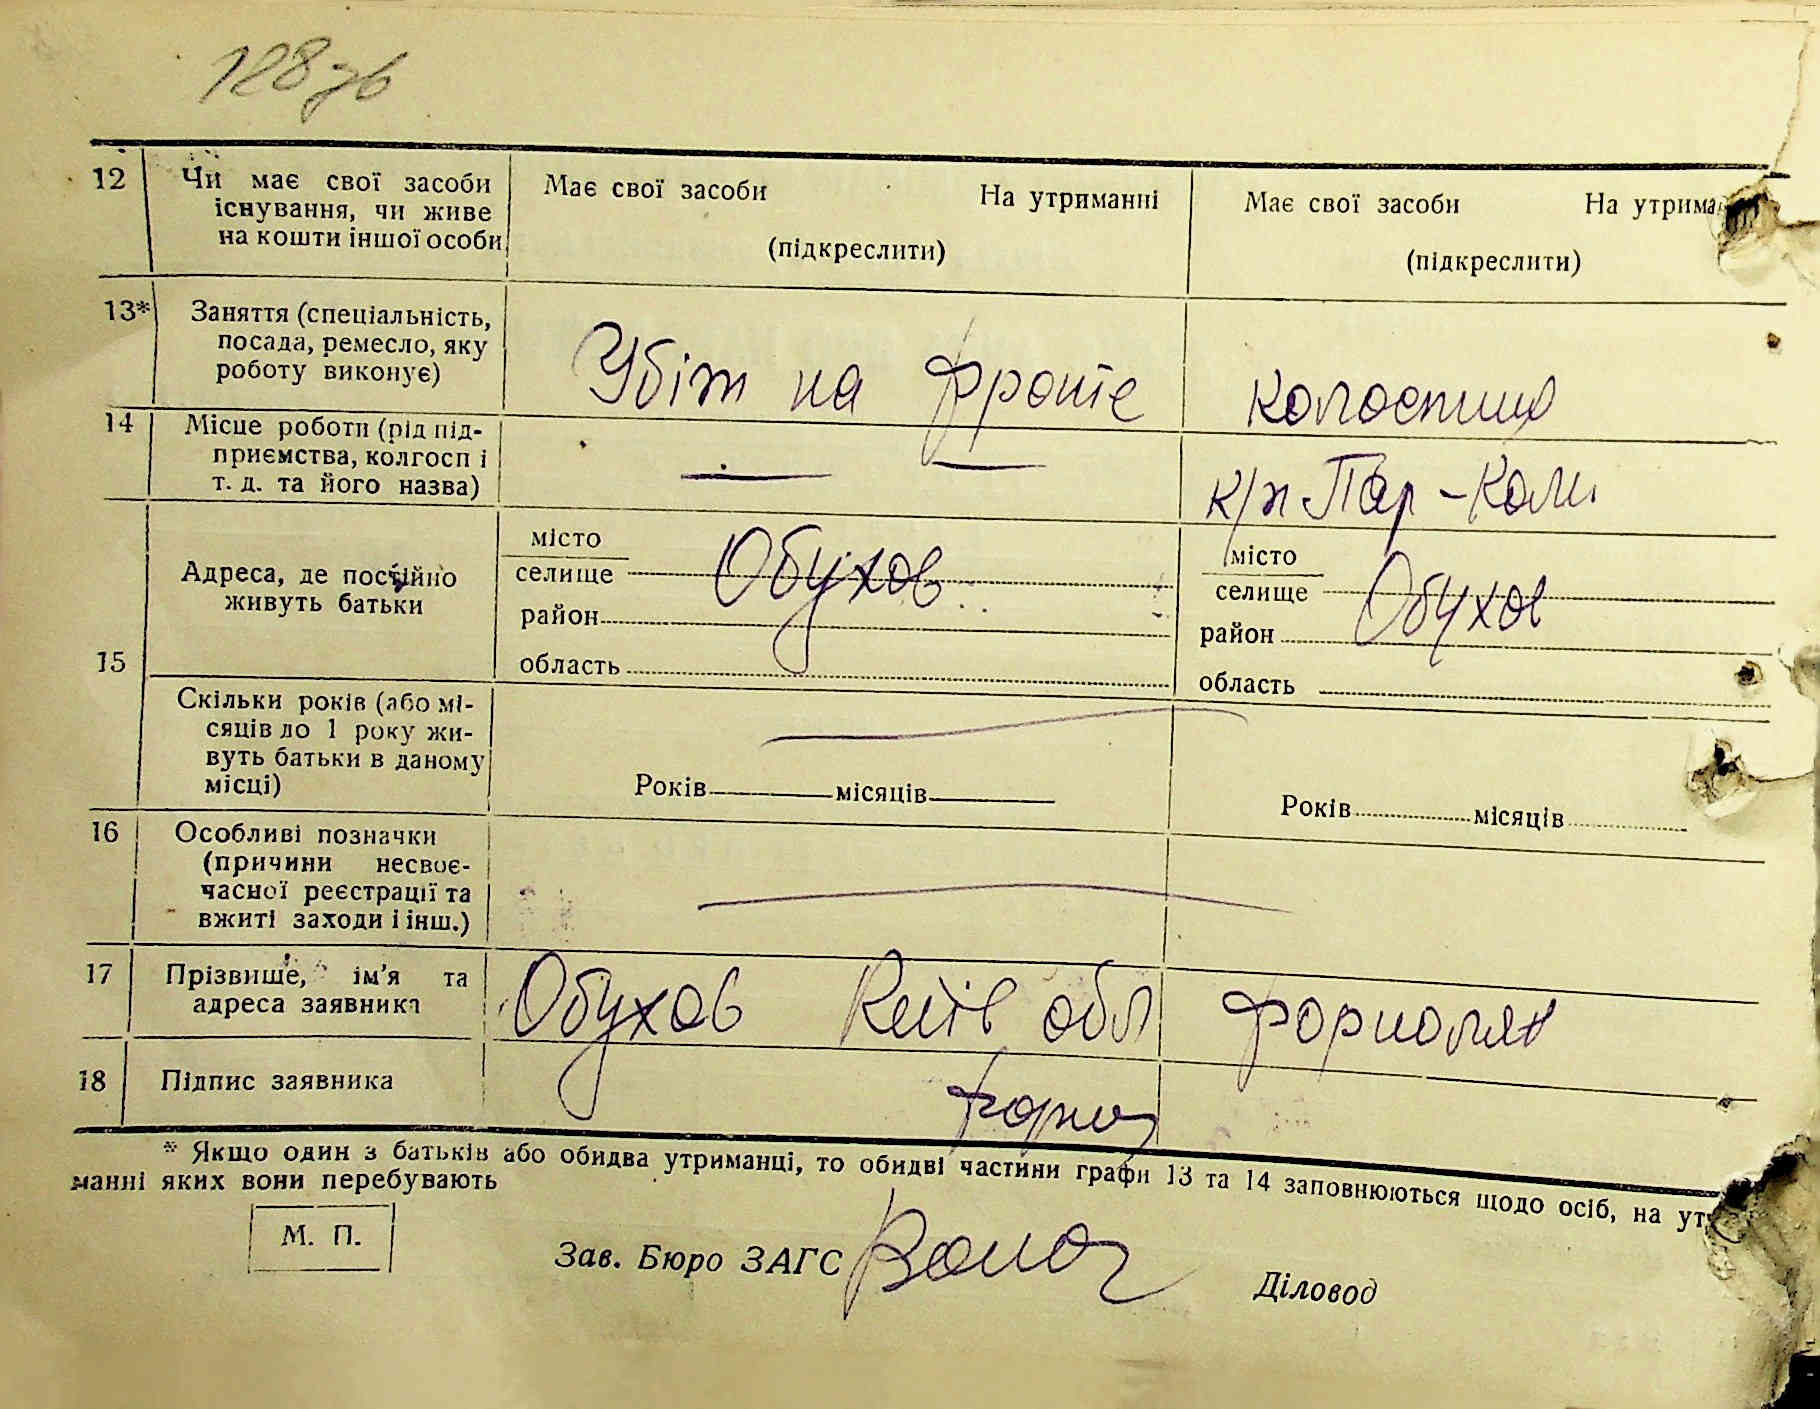 128зв
12 Чи має свої засоби Має свої засоби На утриманні Має свої засоби На утрима
існування, чи живе
на кошти іншої особи (підкреслити) (підкреслити)
13* Заняття (спеціальність,
посада, ремесло, яку
роботу виконує) Убіт на фронте
14 Місце роботи (рід під-
приємства, колгосп і
т. д. та його назва) — — Пар-Ком
15 Адреса, де постійно
живуть батьки
місто місто
селище Обухов селище Обухов
район район
область область
Скільки років (або мі-
сяців до 1 року жи-
вуть батьки в даному
місці) Років місяців Років місяців
16 Особливі позначки
(причини несвоє-
часної реєстрації та
вжиті заходи і інш.)
17 Прізвище, ім'я та
адреса заявника Обухов Київ обл
18 Підпис заявника
* Якщо один з батьків або обидва утриманці, то обидві частини графи 13 та 14 заповнюються щодо осіб, на ут
манні яких вони перебувають
М. П.
Зав. Бюро ЗАГС Діловод